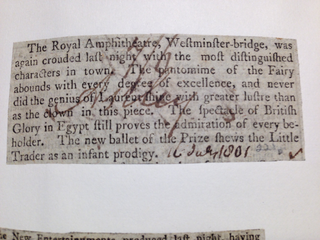 The Royal Amphitheatre, Westminster-bridge, was
again crouded last night with the most distinguished
characters in town. The pantomime of the Fairy
abounds with every degree of excellence, and never
did the genius of Laurent shine with greater lustre than
as the clown in this piece. The spectacle of British
Glory in Egypt still proves the admiration of every be-
holder. The new ballet of the Prize shews the Little
Trader as an infant prodigy. 16 July 1801
the New Entertainments produced last night, having